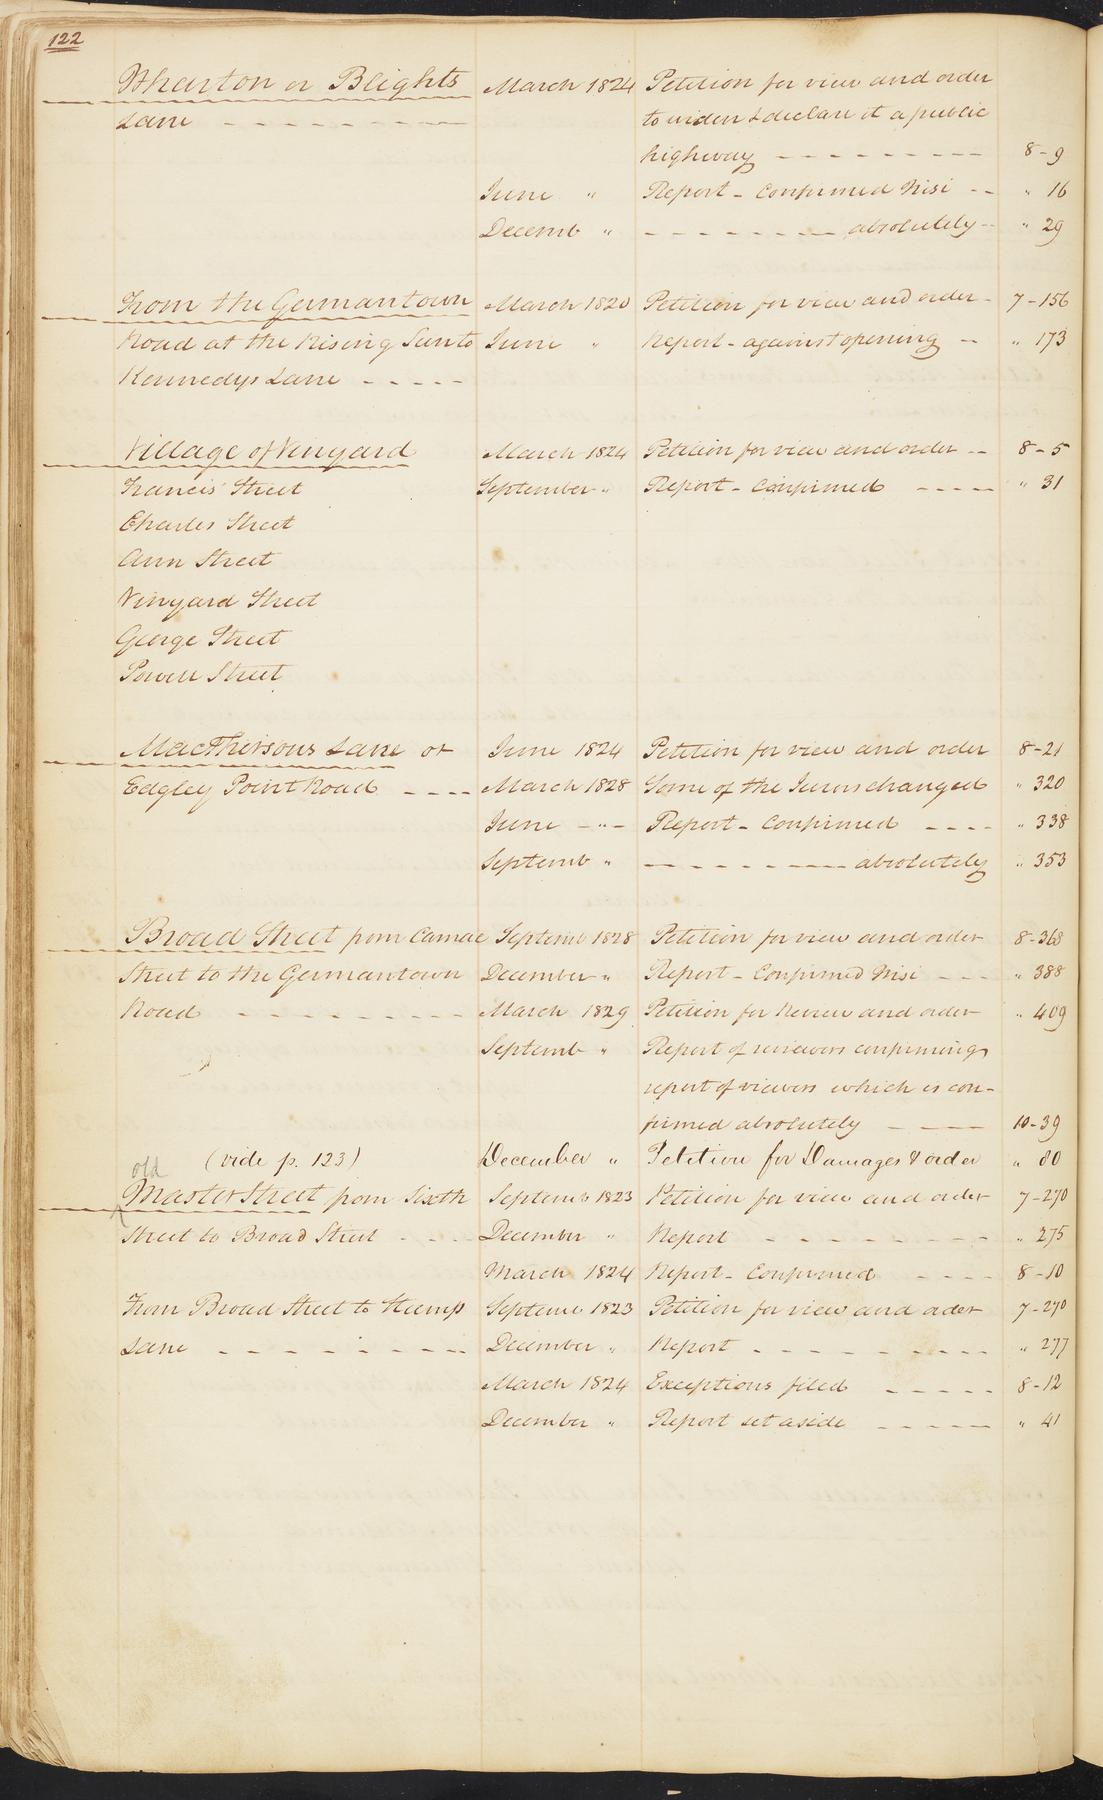 122
Wharton or Blights March 1824 Petition for view and order
Lane to widen & declare it a public
highway 8-9
June " Report - Confirmed Nisi " 16
Decemb " absolutely " 29
From the Germantown March 1820 Petition for view and order 7-156
Road at the Rising Sun to June " Report - against opening " 173
Kennedys Lane
Village of Vinyard March 1824 Petition for view and order 8-5
Francis Street September " Report - Confirmed " 31
Charles Street
Ann Street
Vinyard Street
George Street
Powell Street
MacPhersons Lane or June 1824 Petition for view and order 8-21
Edgley Point Road March 1828 Some of the Jurors changed " 320
June " Report - Confirmed " 338
Septemb " absolutely " 353
Broad Street from Camac Septemb 1828 Petition for view and order 8-368
Street to the Germantown December " Report - Confirmed Nisi " 388
Road March 1829 Petition for Review and order " 409
Septemb " Report of reviewers confirming
report of viewers which is con-
firmed absolutely 10-39
(vide p. 123) December " Petition for Damages & order " 80
old
Master Street from Sixth Septemb 1823 Petition for view and order 7-270
Street to Broad Street December " Report " 275
March 1824 Report - Confirmed 8-10
From Broad Street to Stamp Septemb 1823 Petition for view and order 7-270
Lane December " Report " 277
March 1824 Exceptions filed 8-12
December " Report set aside " 41